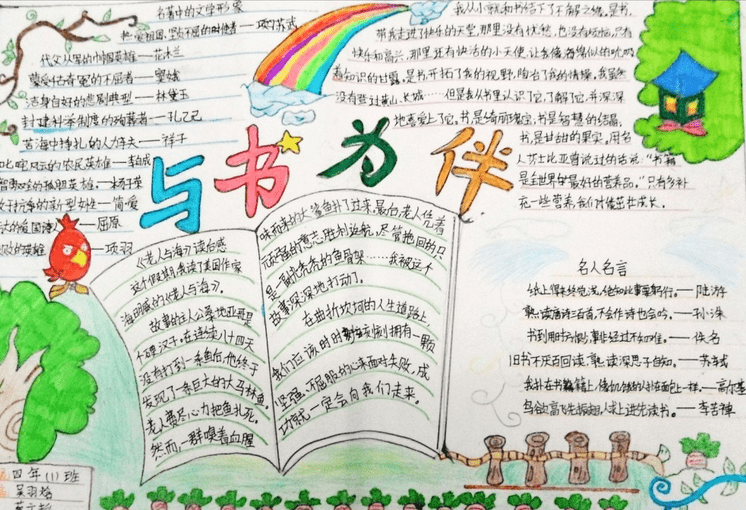 名著中的文学形象
热爱祖国、坚贞不屈的牧羊者——项羽苏武
代父从军的巾帼英雄——花木兰
蒙受千古奇冤的不屈者——窦娥
洁身自好的悲剧典型——林黛玉
封建科举制度的殉葬者——孔乙己
苦海中挣扎的人力车夫——祥子
叱咤风云的农民英雄——李自成
的孤胆英雄——杨子荣
于抗争的新型女性——简爱
的爱国诗人——屈原
败的英雄——项羽
我从小就和书结下了不解之缘,是书,
带我走进了快乐的天堂,那里没有忧愁,也没有烦恼,只有
快乐和高兴,那里还有快活的小天使,让我像海绵似的吮吸
着知识的甘露,是书开拓了我的视野,陶冶了我的情操,我虽然
没有登过黄山、长城……但是我从书里认识了它,了解了它,并深深
地喜爱上了它。书是绮丽瑰宝,书是智慧的结晶。
书,是甘甜的果实,用名
人莎士比亚曾说过的话说:“书籍
是全世界最好的营养品。”只有多补
充一些营养,我们才能茁壮成长。
与书为伴
《老人与海》读后感
这个假期我读了美国作家
海明威的《老人与海》。
故事的主人公桑地亚哥是
个硬汉子,在连续八十四天
没有打到一条鱼后,他终于
发现了一条巨大的大马林鱼。
老人费尽心力把鱼扎死。
然而,一群嗅着血腥
味而来的大鲨鱼扑了过来,最后,老人凭着
顽强的意志胜利返航,尽管拖回的只
是一副光秃秃的鱼骨架……我被这个
故事深深地打动了。
在曲折坎坷的人生道路上,
我们应该时时刻刻拥有一颗
坚强、不屈服的心来面对失败,成
功就一定会向我们走来。
名人名言
纸上得来终觉浅,绝知此事要躬行。——陆游
熟读唐诗三百首,不会作诗也会吟。——孙洙
书到用时方恨少,事非经过不知难。——佚名
旧书不厌百回读,熟读深思子自知。——苏轼
我扑在书籍上,像饥饿的人扑在面包上一样。——高尔基
鸟欲高飞先振翅,人求上进先读书。——李苦禅
四年(1)班